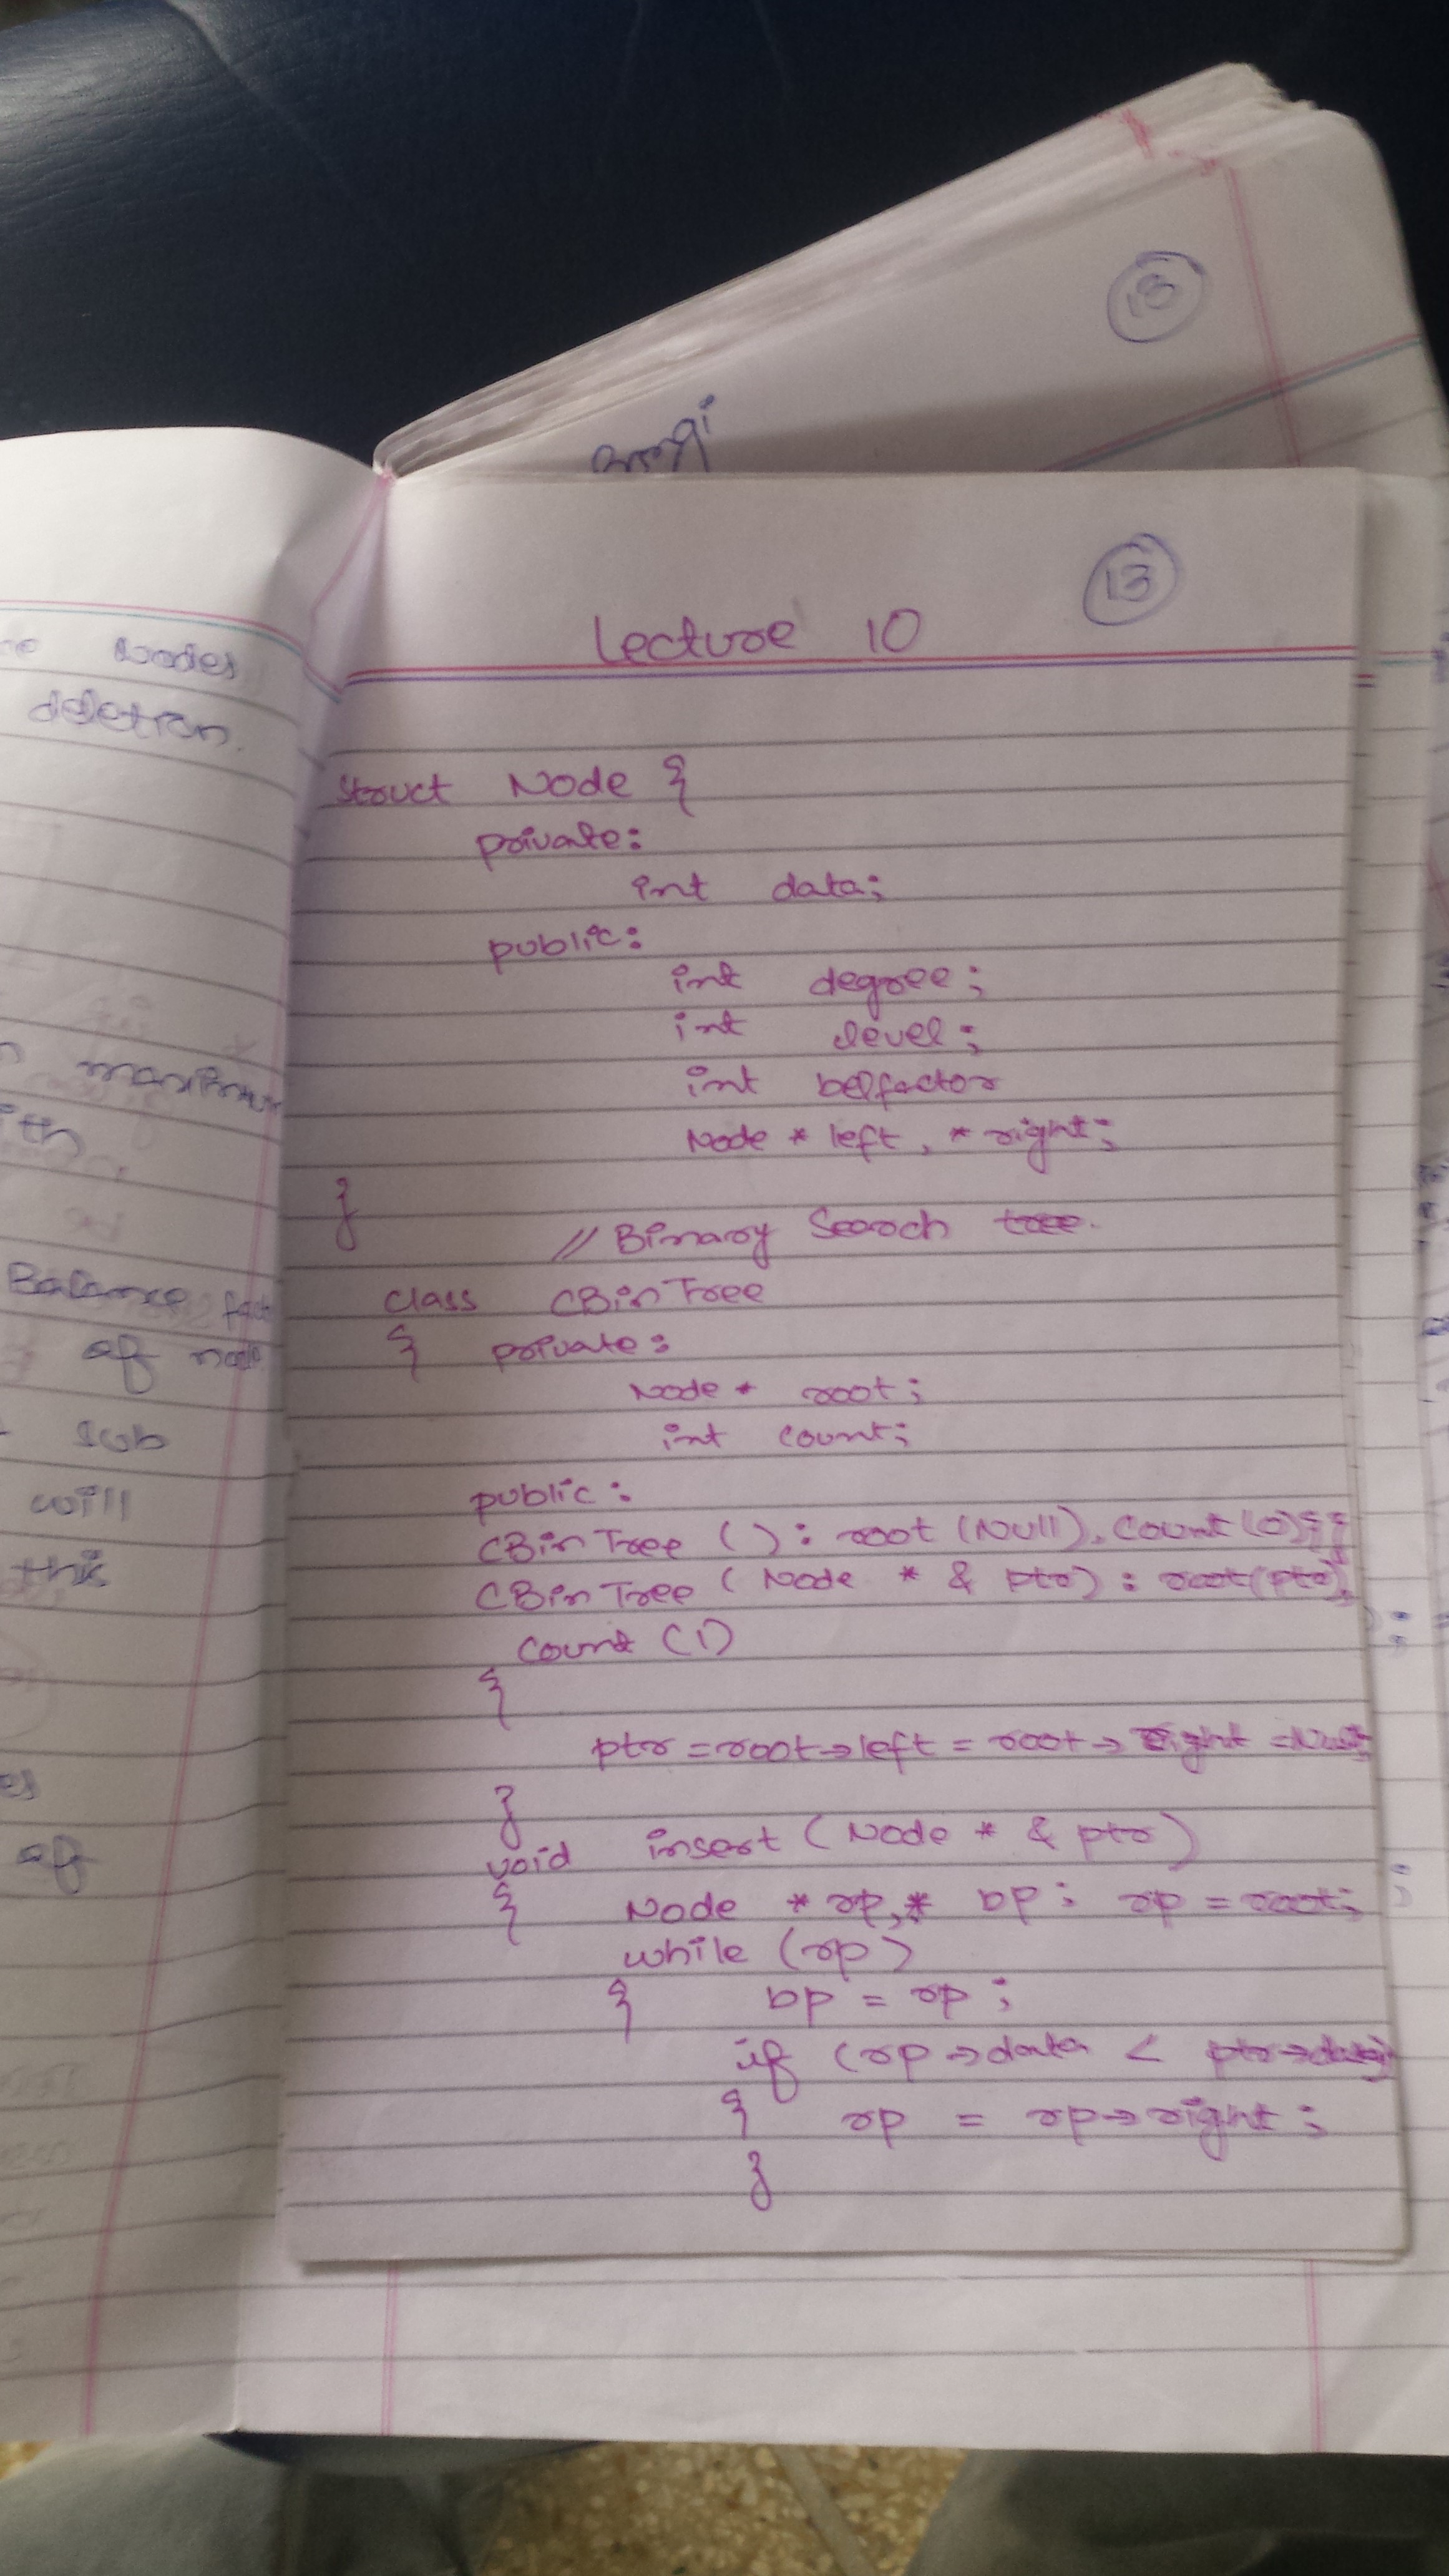 18
13
Lecture 10
Nodes
deletion.
Balance
of node
sub
will
this
of
struct Node {
private:
int data;
public:
int degree;
int level;
int belfactor
Node * left, * right;
}
// Binary Search tree.
class CBinTree
{ private:
Node * root;
int count;
public:
CBinTree () : root (Null), count (0) { }
CBinTree ( Node * & ptr) : root(ptr),
count (1)
{
ptr = root → left = root → right = Null;
}
void insert ( Node * & ptr )
{ Node * rp, * bp; rp = root;
while (rp)
{ bp = rp ;
if (rp → data < ptr → data)
{ rp = rp → right ;
}